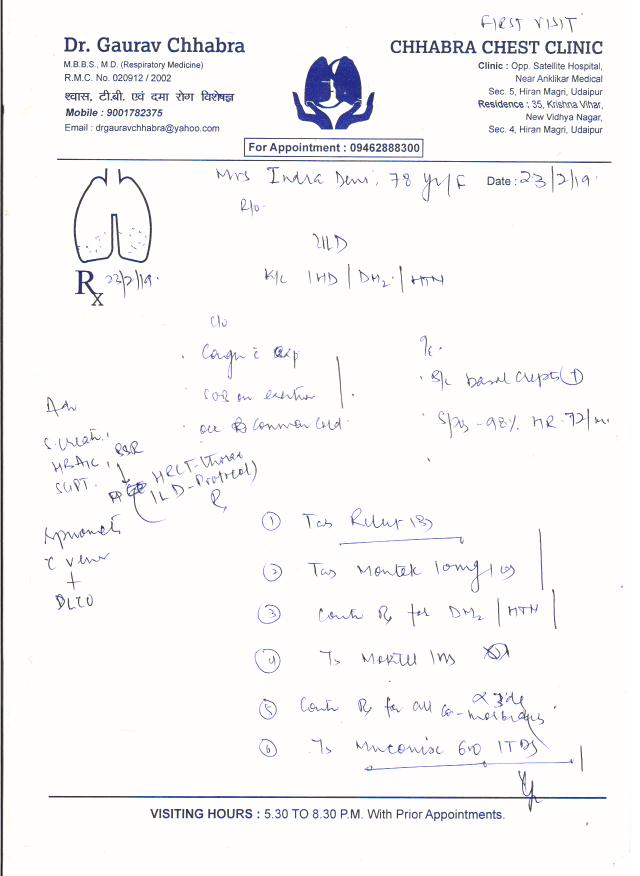 FIRST VISIT
Dr. Gaurav Chhabra
M.B.B.S., M.D. (Respiratory Medicine)
R.M.C. No. 020912 / 2002
श्वास, टी.बी. एवं दमा रोग विशेषज्ञ
Mobile : 9001782375
Email : drgauravchhabra@yahoo.com
CHHABRA CHEST CLINIC
Clinic : Opp. Satellite Hospital,
Near Anklikar Medical
Sec. 5, Hiran Magri, Udaipur
Residence : 35, Krishna Vihar,
New Vidhya Nagar,
Sec. 4, Hiran Magri, Udaipur
For Appointment : 09462888300
Mrs Indra Devi, 78 yr/F
Date : 23/2/19.
R/o.
ILD
Rx 23/2/19.
K/c IHD / DM2 / HTN
c/o
Cough c exp
SOB on exertion
occ common cold
B/c basal crepts (+)
SpO2 - 98% HR - 72/m
Adv
S. creat.,
HBA1C, RSR
SGPT.
HRCT-thorax
(ILD-Protocol)
+
DLCO
① Tab
② Tab Montek 10mg 1
③ Contn Rx for DM2 / HTN
④ Tb
⑤ Contn Rx for all co-morbidities
⑥ Tb Mucomix 600 1TDS
VISITING HOURS : 5.30 TO 8.30 P.M. With Prior Appointments.